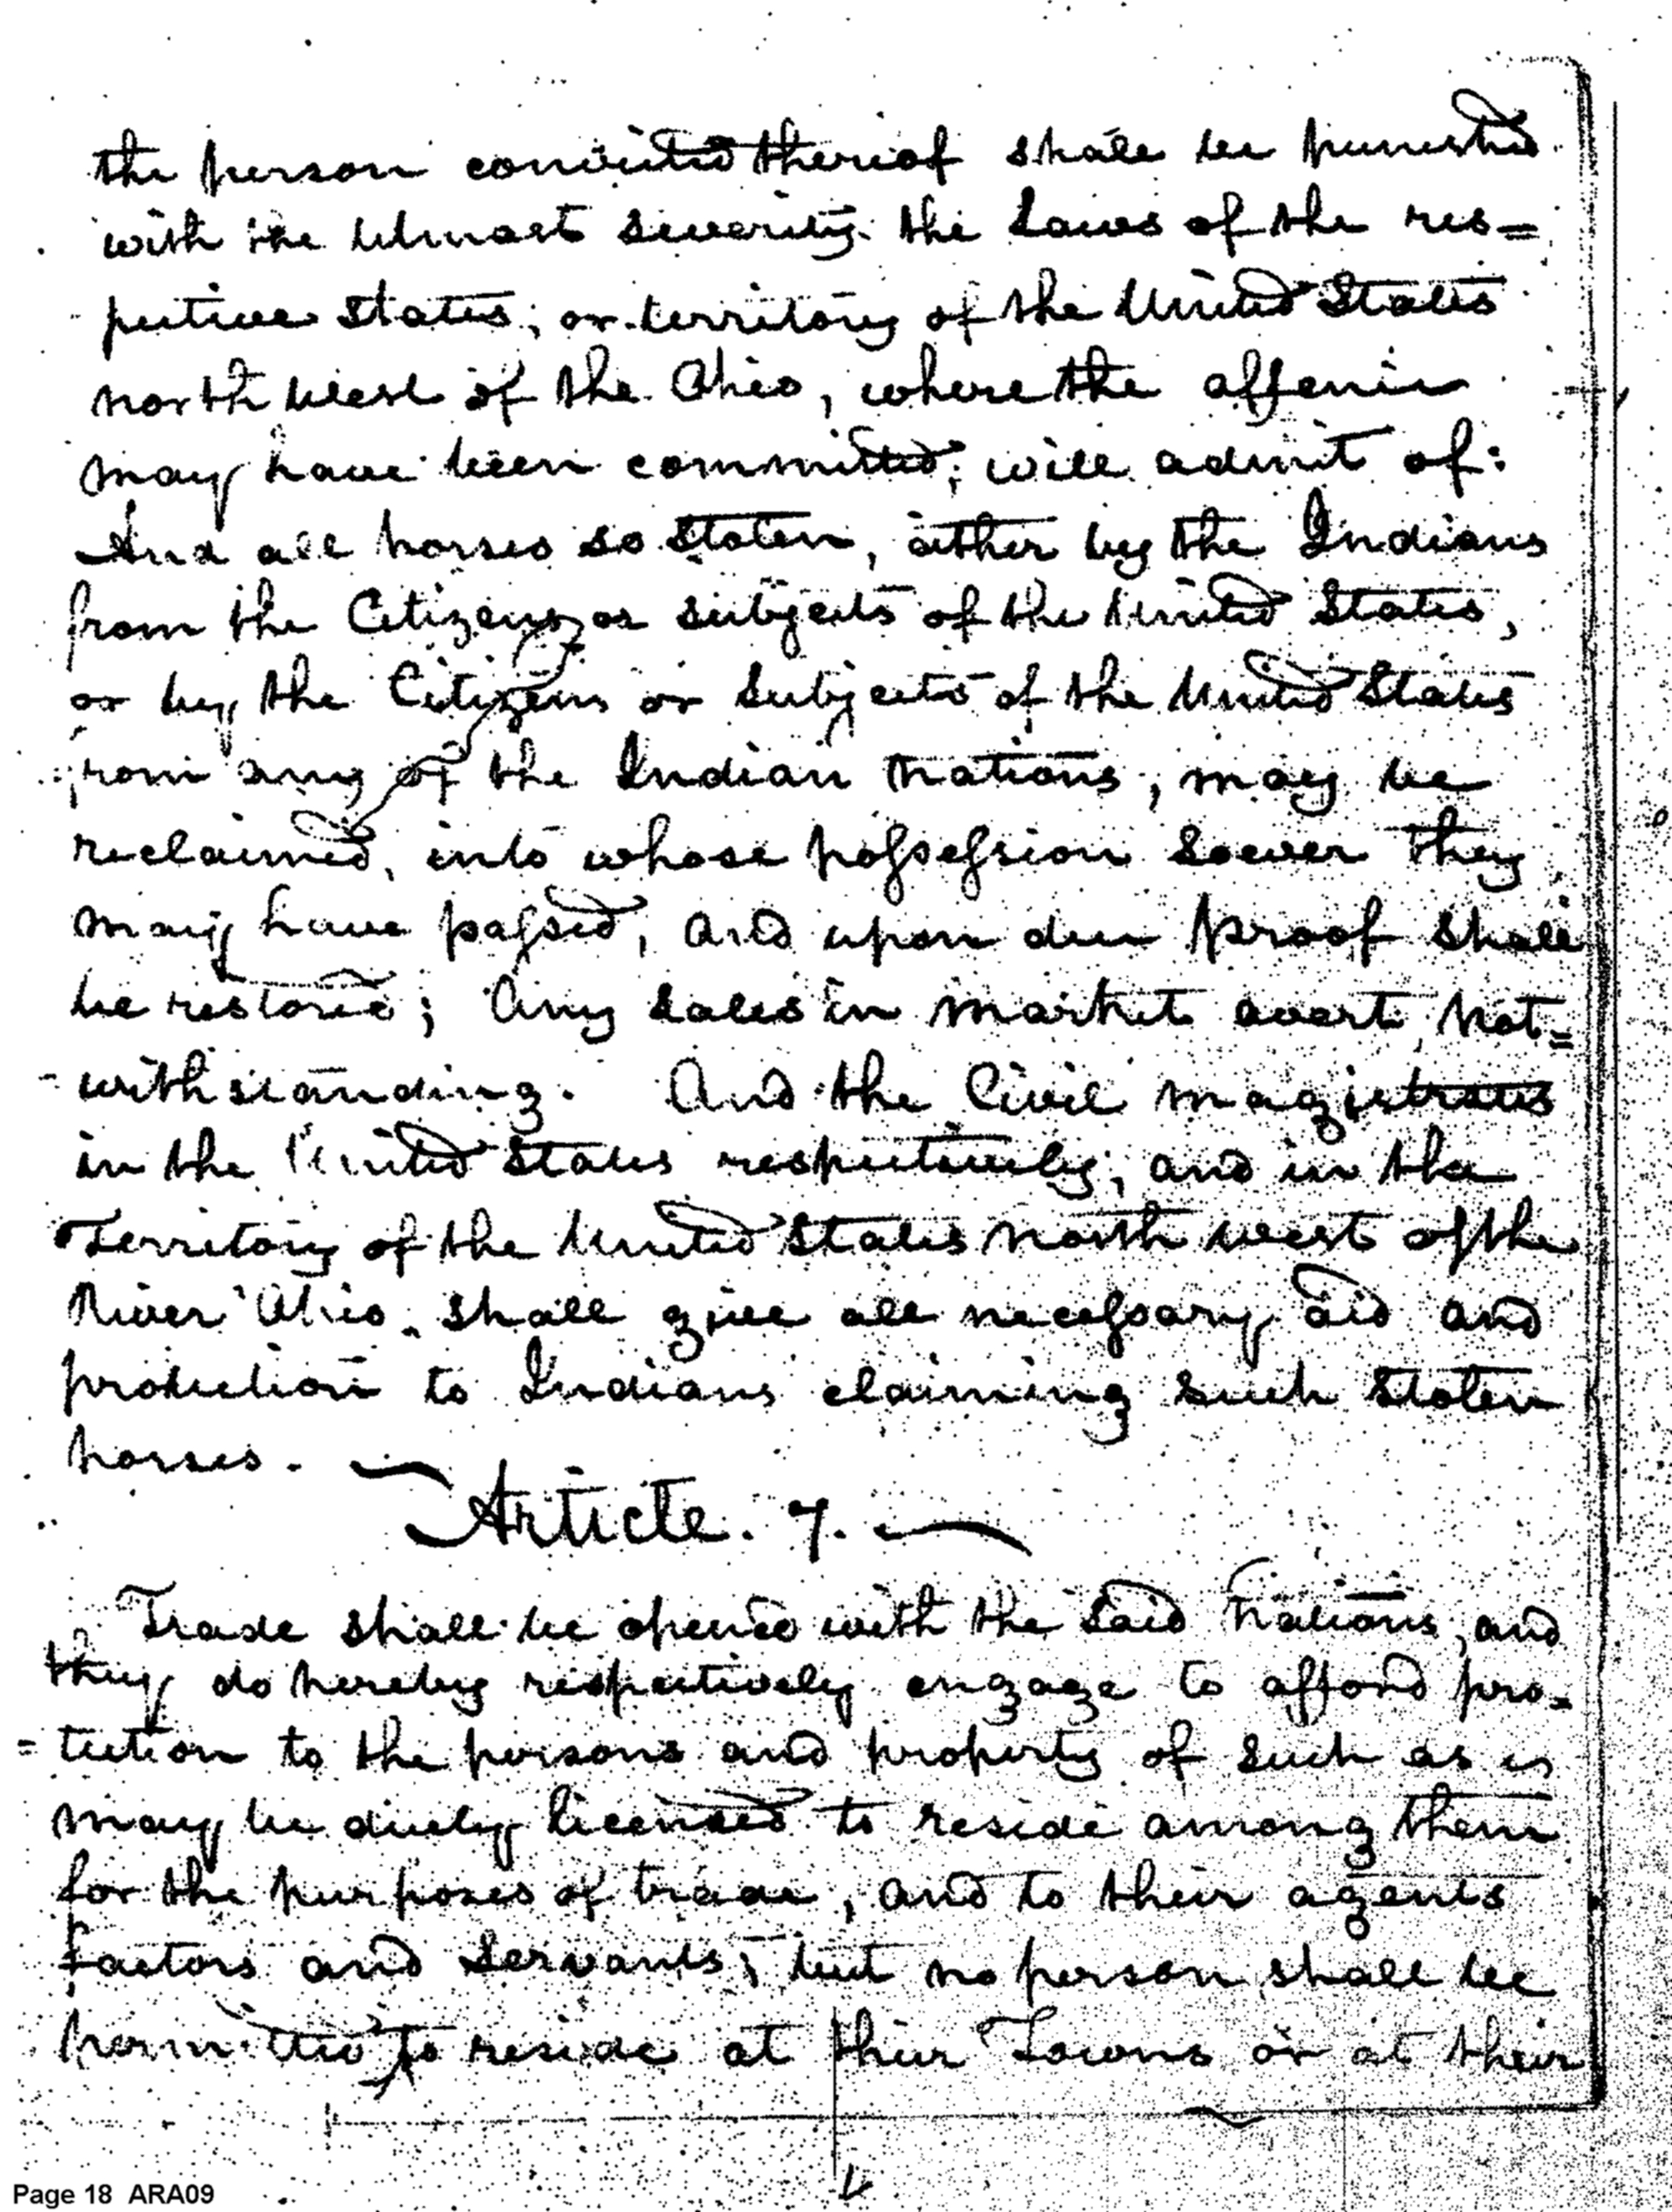 the person convicted thereof shall be punished
with the utmost severity the Laws of the res=
pective States, or territory of the United States
north West of the Ohio, where the offence
may have been committed, will admit of:
And all horses so Stolen, either by the Indians
from the Citizens or subjects of the United States,
or by the Citizens or Subjects of the United States
from any of the Indian Nations, may be
reclaimed, into whose possession Soever they
may have passed, and upon due proof Shall
be restored; Any Sales in Market overt, not=
-withstanding. And the Civil magistrates
in the United States respectively, and in the
Territory of the United States North west of the
River Ohio, shall give all necessary aid and
protection to Indians claiming such Stolen
horses.
Article. 7.
Trade shall be opened with the Said Nations, and
they do hereby respectively engage to afford pro=
=tection to the persons and property of such as
may be duely licensed to reside among them
for the purposes of trade, and to their agents
factors and Servants; but no person shall be
permitted to reside at their Towns or at their
Page 18 ARA09